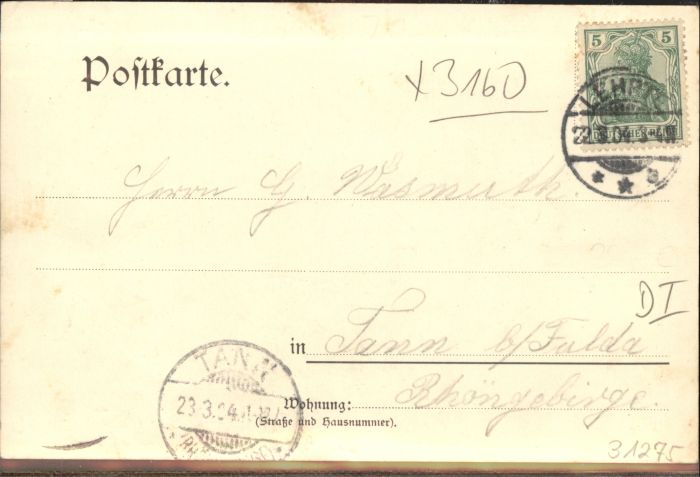 Postkarte.
x 3160
5 5
LEHRTE
DEUTSCHES REICH
22.3.04
Herrn G. Wasmuth.
D I
in Tann b/Fulda
TANN
23.3.04.
Wohnung: Rhöngebirge.
(Straße und Hausnummer).
31275